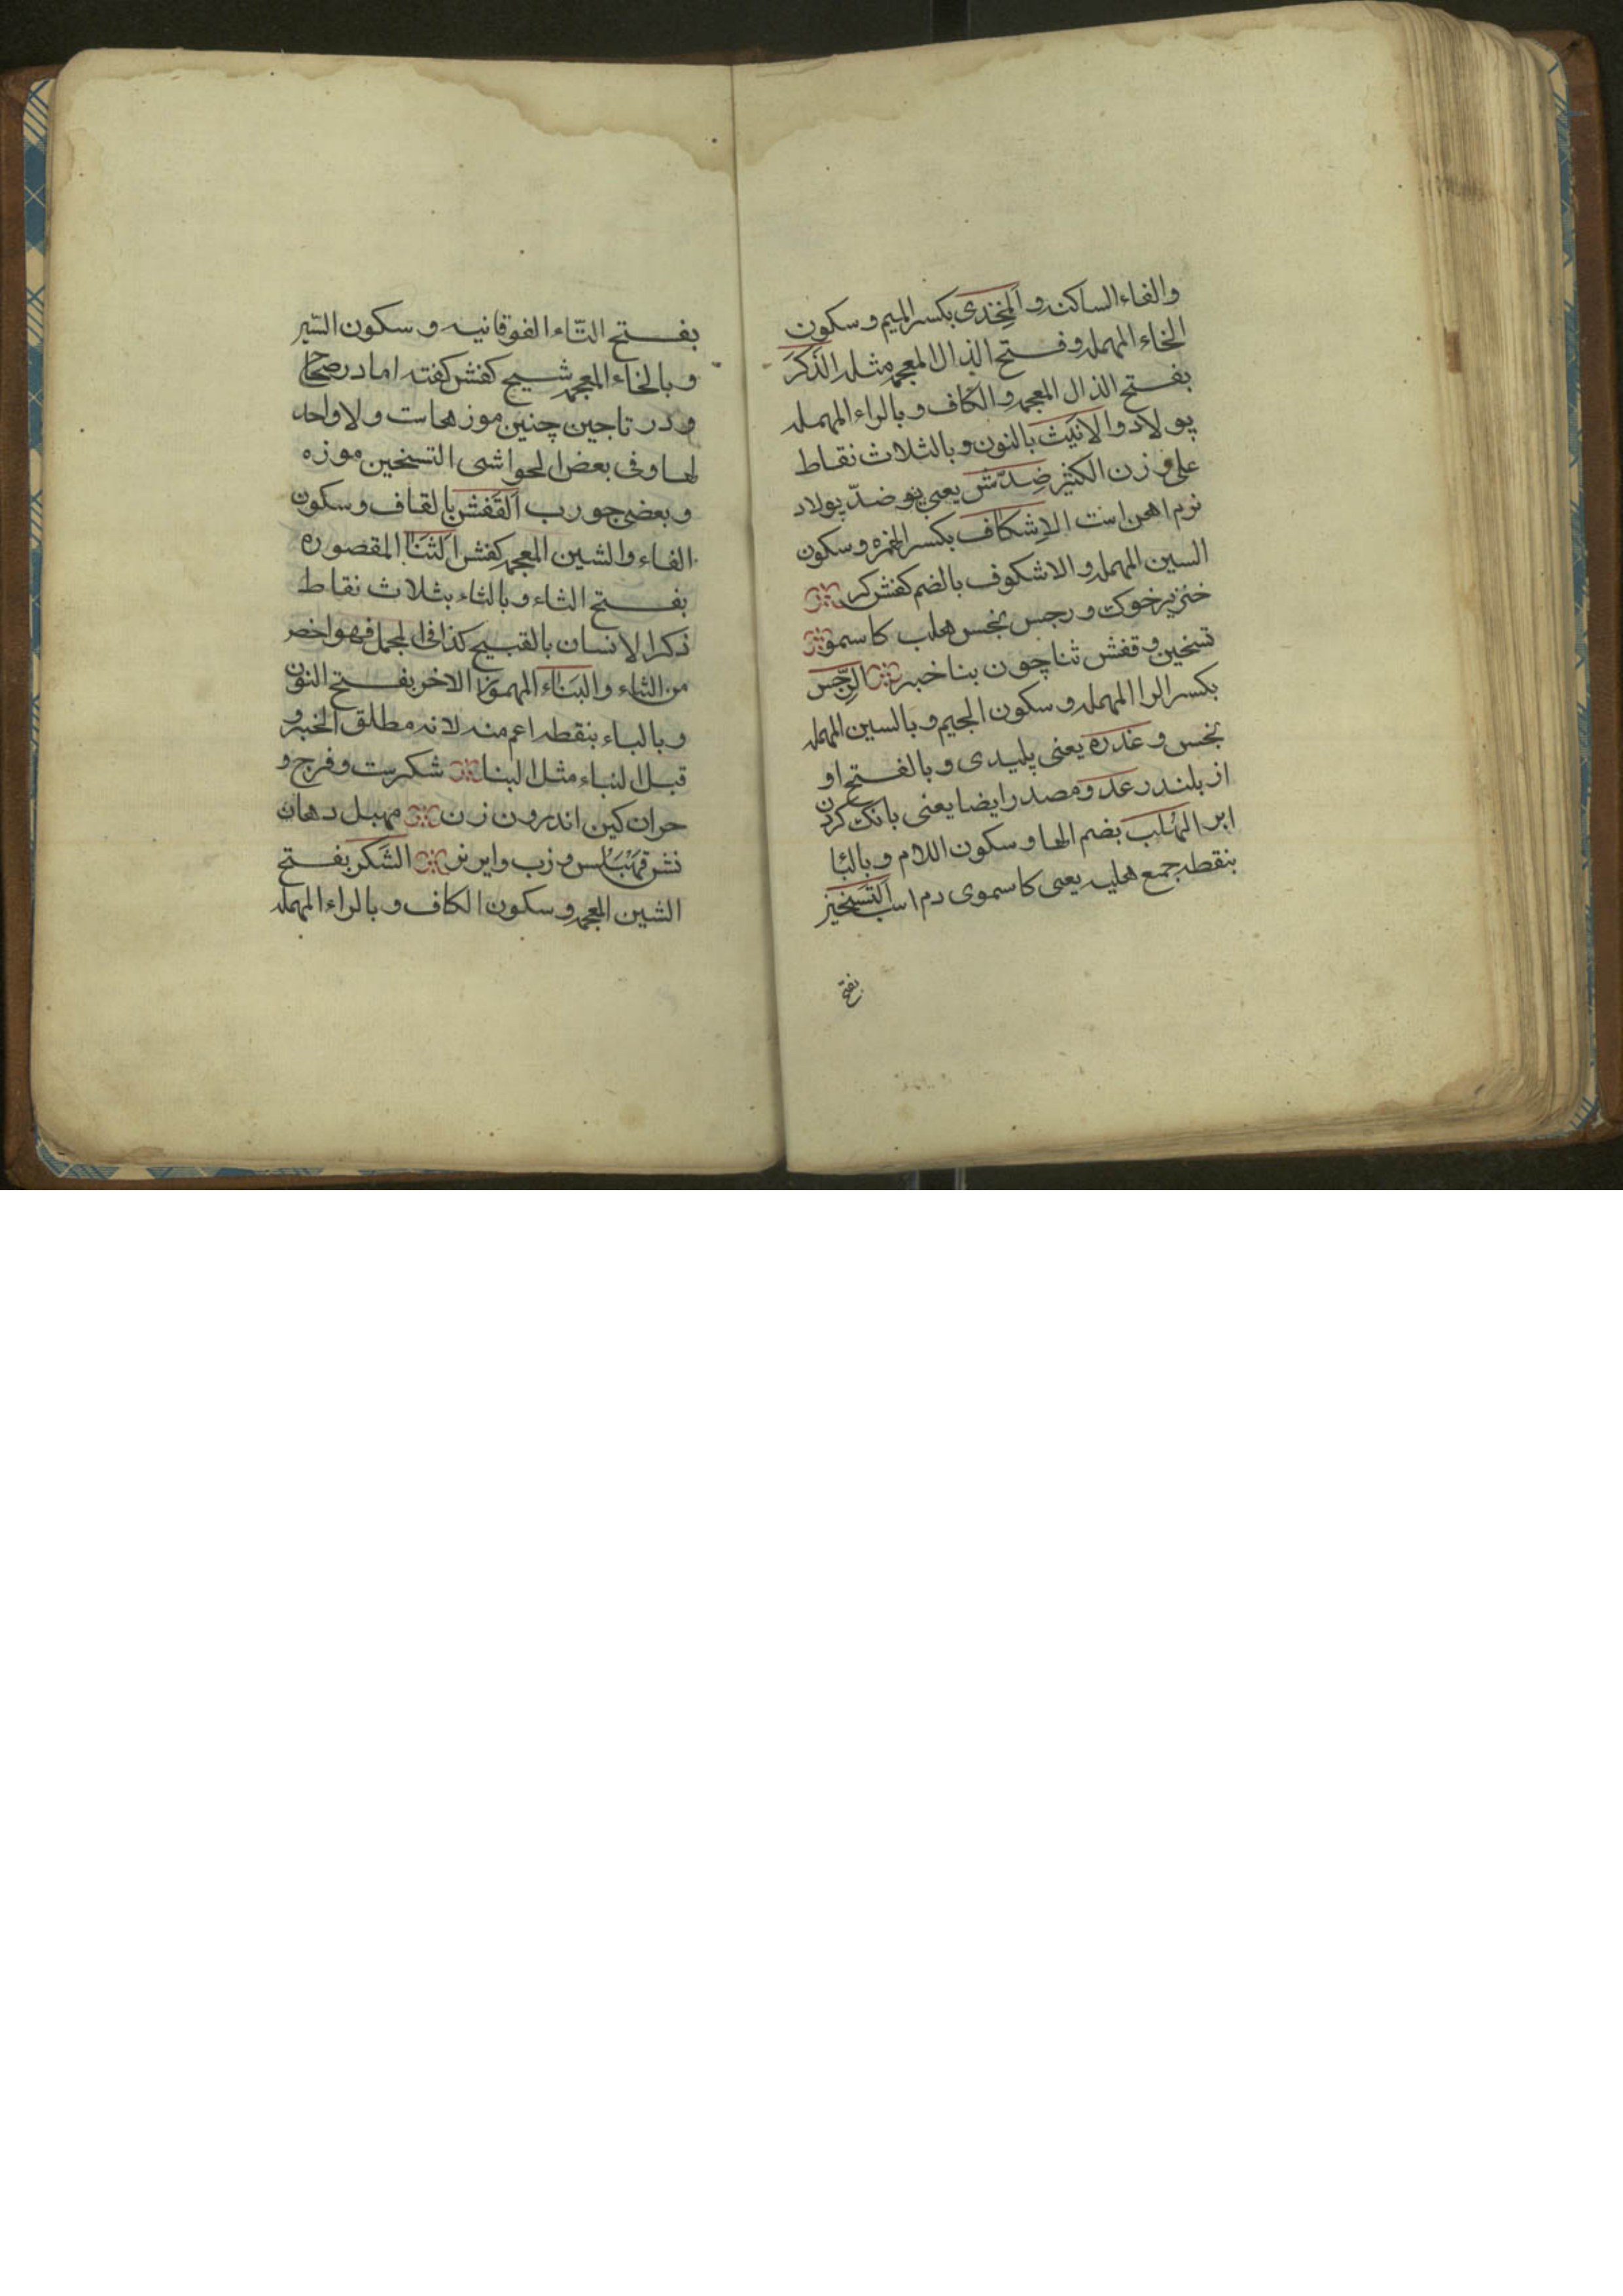 والفاء الساكنه و المخذی بکسر المیم و سکون
الخاء المهمله و فتح الذال المعجمه مثله الذکر
بفتح الذال المعجمه و الکاف و بالراء المهمله
پولاد و الانیث بالنون و بالثلاث نقاط
علی وزن الکثیر ضدش یعنی پو ضد پولاد
نرم اهن است الاشکاف بکسر الهمزه و سکون
السین المهمله و الاشکوف بالضم کفش کر
خنزیر خوک و رجس نجس هلب کاسمو
تسخین و قفش ثنا چون بنا خبر الرجس
بکسر الرا المهمله و سکون الجیم و بالسین المهمله
نجس و عذره یعنی پلیدی و بالفتح او
از بلند رعد و مصدر ایضا یعنی بانک کردن
ابر الهلب بضم الها و سکون اللام و بالبا
بنقطه جمع هلبه یعنی کاسموی دم اسب التسخین
بفتح
بفتح التاء الفوقانیه و سکون السین
و بالخاء المعجمه شیج کفش کفته اما در صحاح
و در تاجین چنین موزهاست و لا واحد
لها و فی بعض الحواشی التسخین موزه
و بعضی جورب القفش بالقاف و سکون
الفاء و الشین المعجمه کفش الثنا المقصوره
بفتح الثاء و بالثاء بثلاث نقاط
ذکر الانسان بالقبیح کذا فی المجمل فهو اخص
من الثناء و النباء المهموز الاخر بفتح النون
و بالباء بنقطه اعم منه لانه مطلق الخبر و
قبل النباء مثل البنا شکرست و فرج و
حران کین اندرون زن مهبل دهان
نش قهبلس و زب و ایر نر الشکر بفتح
الشین المعجمه و سکون الکاف و بالراء المهمله